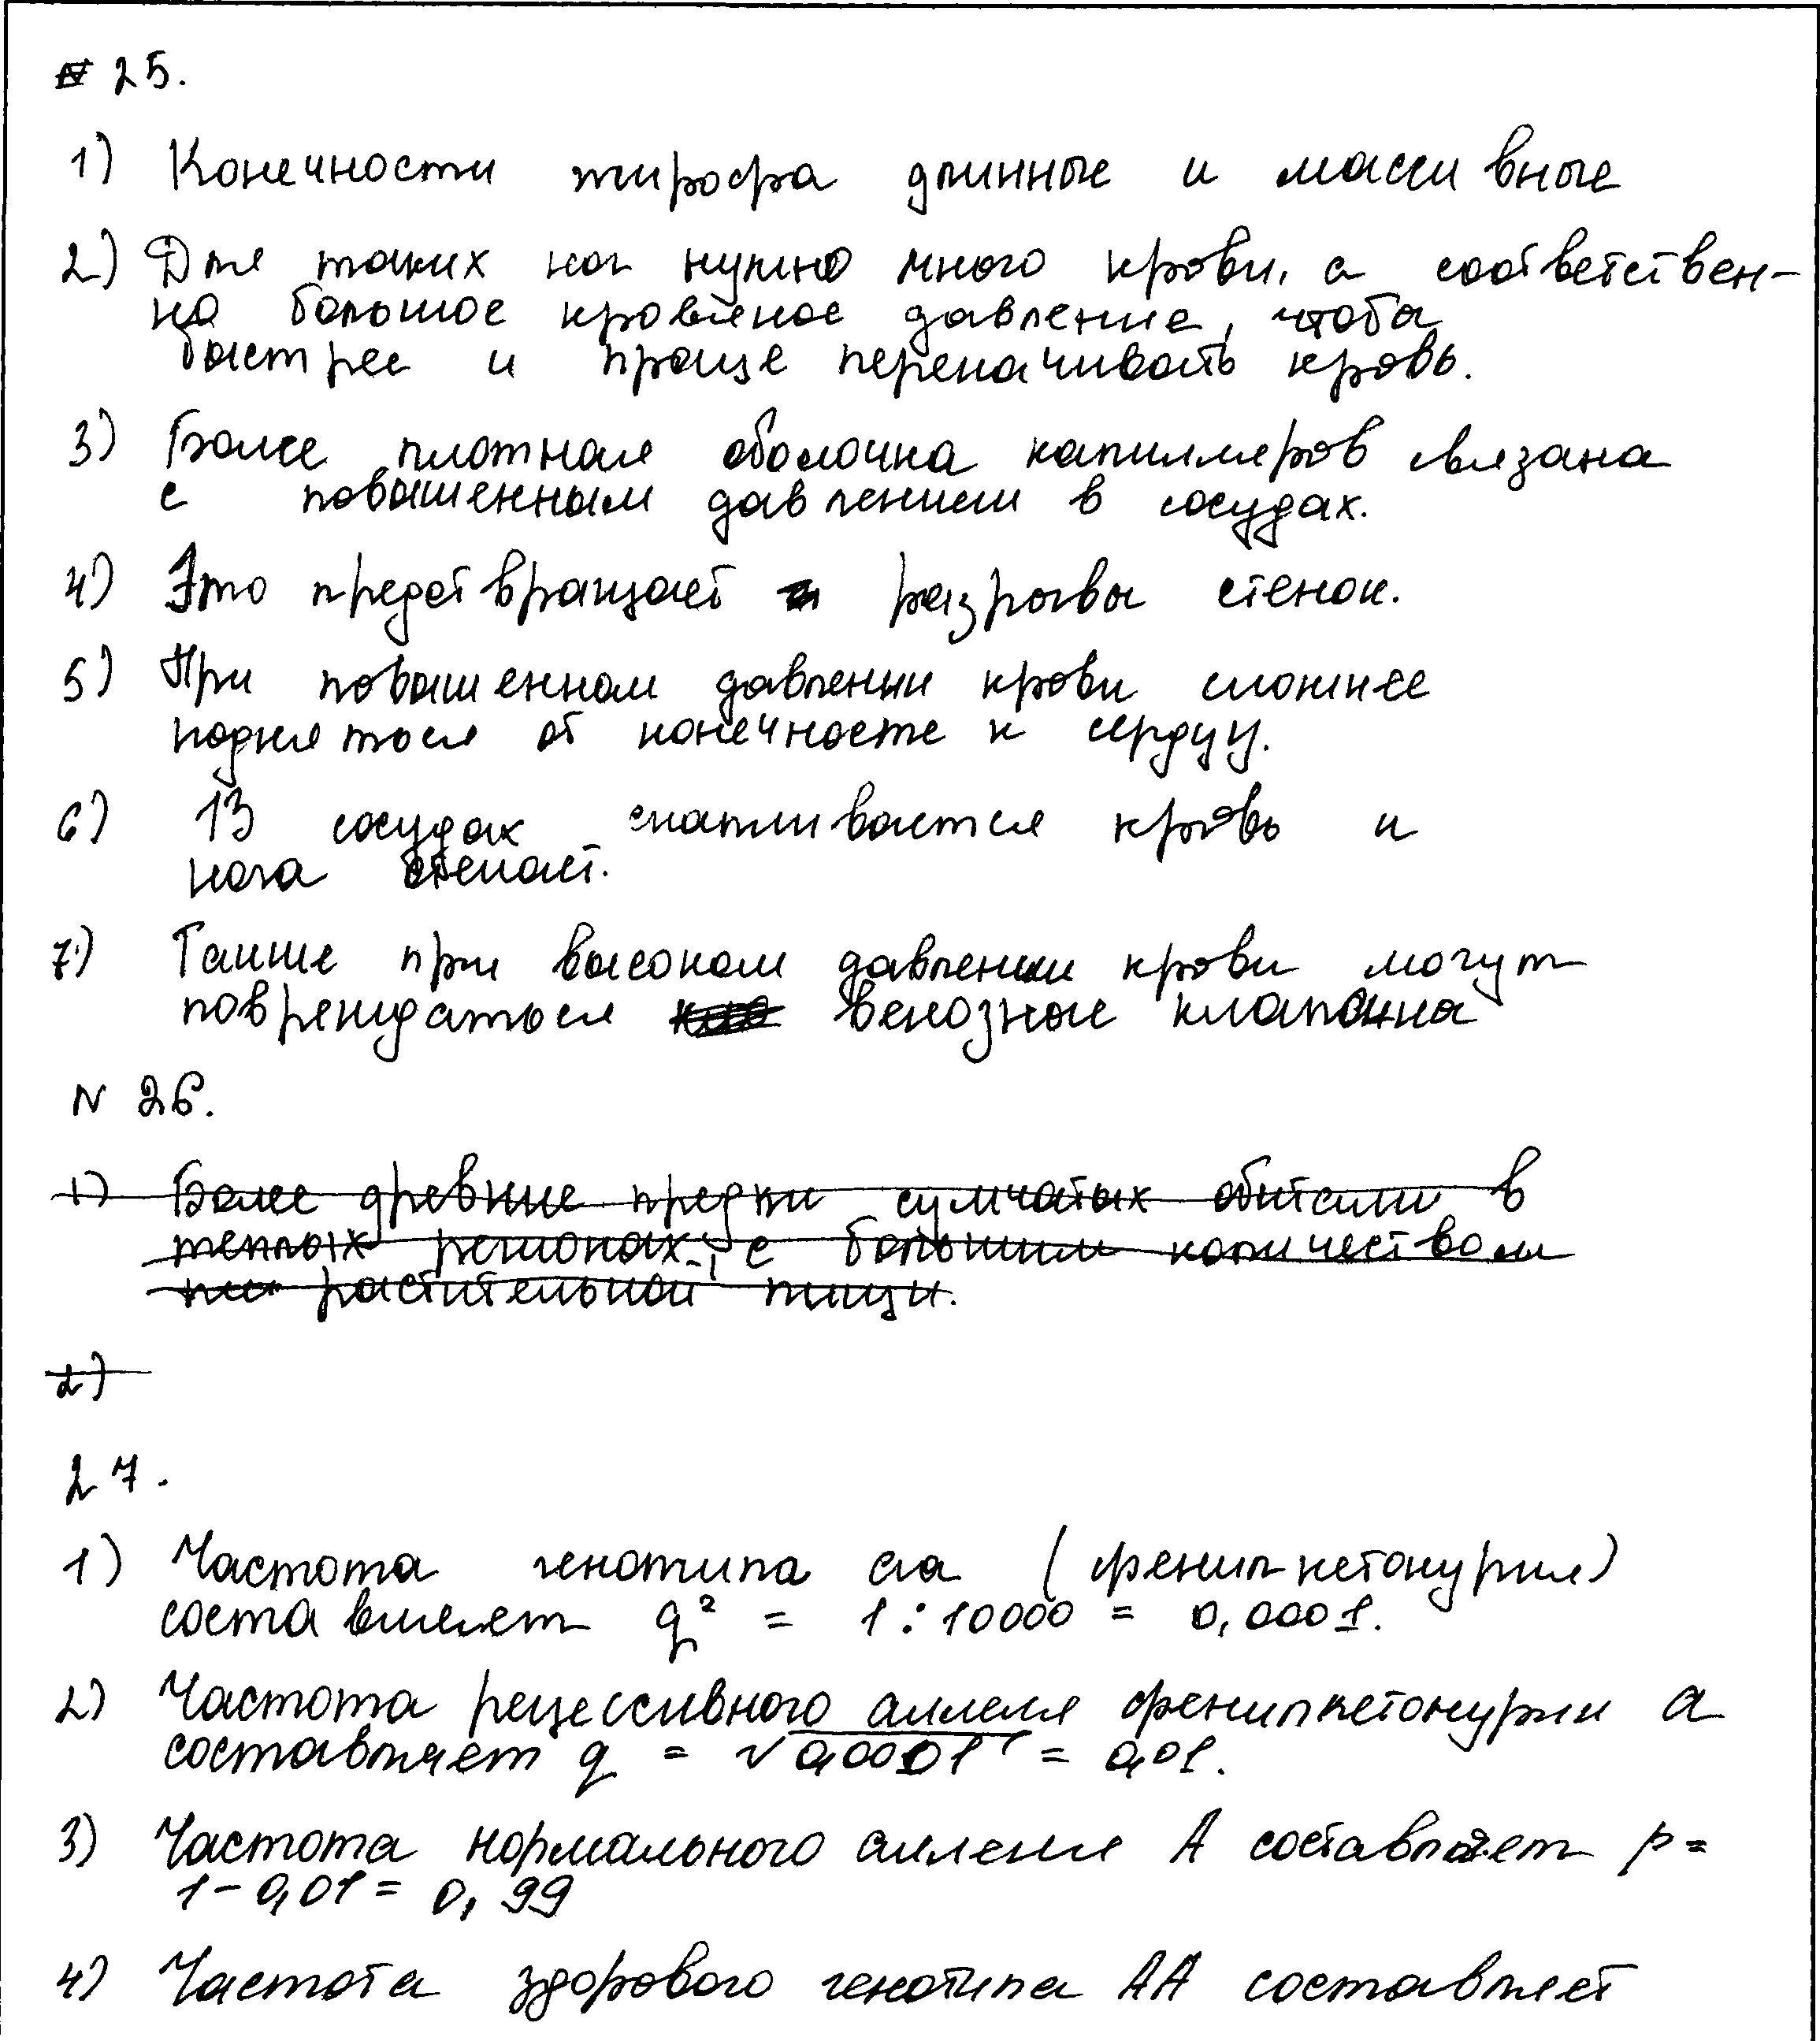 № 25.
1) Конечности жирафа длинные и массивные
2) Для таких ног нужно много крови, а соответствен-
но большое кровяное давление, чтобы
быстрее и проще перекачивать кровь.
3) Более плотная оболочка капилляров связана
с повышенным давлением в сосудах.
4) Это предотвращает разрывы стенок.
5) При повышенном давлении крови сложнее
подняться от конечносте к сердцу.
6) В сосудах скапливается кровь и
нога отекает.
7) Также при высоком давлении крови могут
повреждаться венозные клапанны
N 26.
1) Более древние предки сумчатых обитали в
теплых регионах, с большим количеством
растительной пищи.
2)
27.
1) Частота генотипа аа (фенилкетонурия)
составляет q² = 1:10000 = 0,0001.
2) Частота рецессивного аллеля фенилкетонурии а
составляет q = √0,0001 = 0,01.
3) Частота нормального аллеля А составляет p =
1-0,01 = 0,99
4) Частота здорового генотипа АА составляет